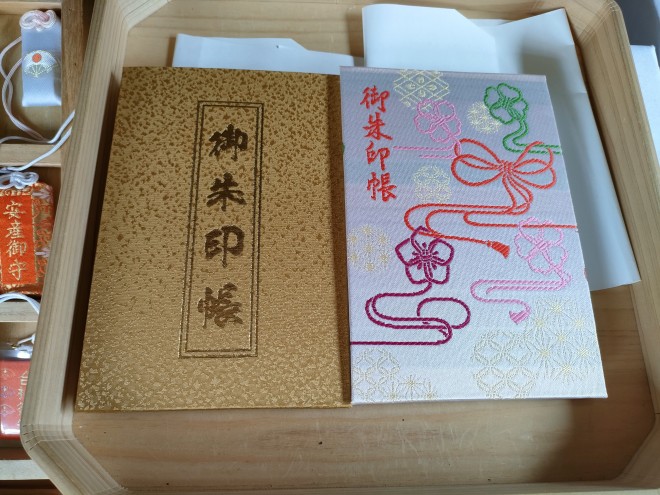 御朱印帳
御朱印帳
安産御守